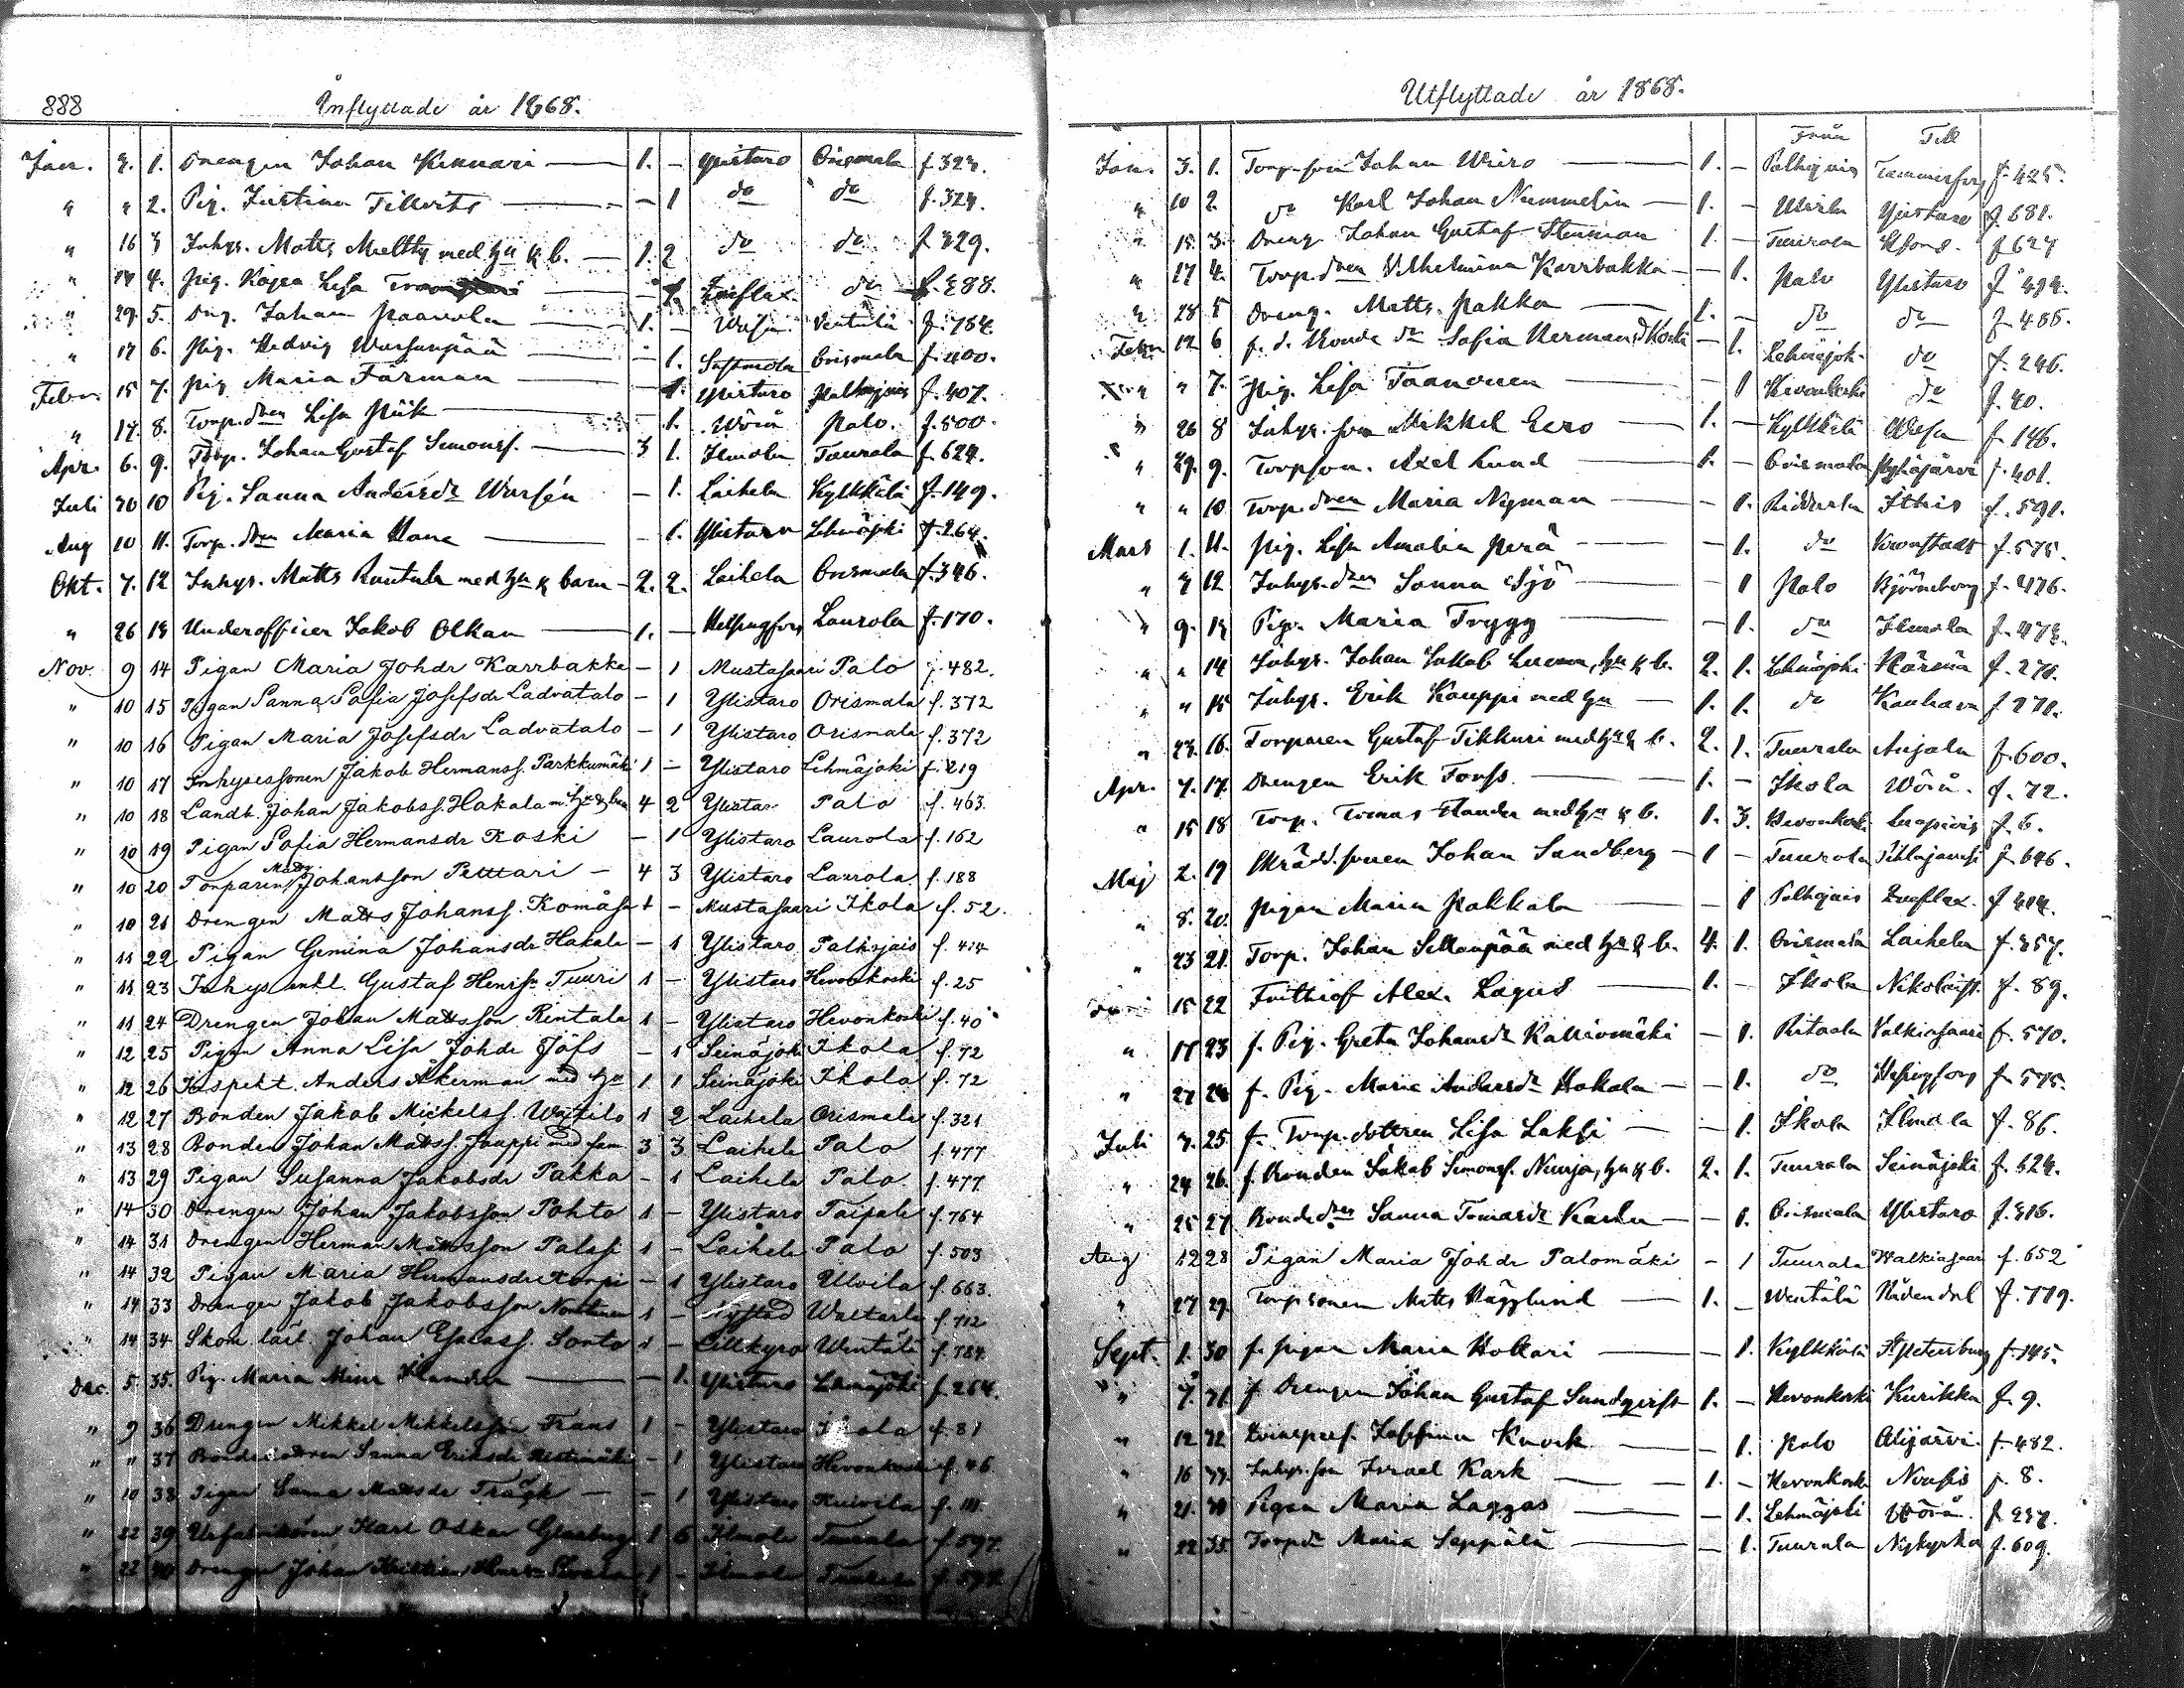 888
Inflyttade år 1868.
Jan. 3. 1. Drengen Johan Kinnari — 1. - Ylistaro Orismala f. 323.
" " 2. Pig. Justina Tillerts — - 1 do do f. 324.
" 16 3 Inhys. Matts Meltty med hu & b. — 1. 2 do do f 329.
" 4. Pig. Kajsa Lisa — 1. do f. 388.
" 29. 5. Drg. Johan Paavola — 1. - Wasa Ventälä f. 784.
" 17 6. Pig. Hedvig — - 1. Orismala f. 400.
Febr. 15 7. Pig Maria Färman — 1. Ylistaro Palhojais f. 407.
" 17. 8. Torp.dren Lisa Piik — 1. Wörå Palo. f. 500.
Apr. 6. 9. Torp. Johan Gustaf Simonsf. — 3 1. Ilmola Tuurala f. 624.
Juli 20 10 Pig. Sanna Andersdr Warsén - 1. Laihela Kylkkälä f. 149.
Aug 10 11. Torp.dren Maria — - 1. Ylistaro Lehmäjoki f. 264.
Okt. 7. 12 Inhys. Matts Rautala med hu & barn - 2. 2. Laihela Orismala f. 346.
" 26 13 Underofficer Jakob Olkan — 1. - Helsingfors Laurola f. 170.
Nov. 9 14 Pigan Maria Johdr Karrbakka - 1 Mustasaari Palo f. 482.
" 10 15 Pigan Sanna Sofia Josefsdr Ladvatalo - 1 Ylistaro Orismala f. 372
" 10 16 Pigan Maria Josefsdr Ladvatalo - 1 Ylistaro Orismala f. 372
" 10 17 Inhysessonen Jakob Hermansf. Parkkumäki 1 - Ylistaro Lehmäjoki f. 219
" 10 18 Landb. Johan Jakobsf. Hakala m. hu & barn 4 2 Ylistaro Palo f. 463.
" 10 19 Pigan Sofia Hermansdr Koski - 1 Ylistaro Laurola f. 162
" 10 20 Torparen Matts Johansson Pettari - 4 3 Ylistaro Laurola f. 188
" 10 21 Drengen Matts Johansf. 1 - Mustasaari Ikola f. 52.
" 11 22 Pigan Gemina Johansdr Hakala - 1 Ylistaro Palhojais f. 414
" 11 23 Inhys enkl. Gustaf Henrsf. Tuuri 1 - Ylistaro Hevonkoski f. 25
" 11 24 Drengen Johan Mattsson Rintala 1 - Ylistaro Hevonkoski f. 40
" 12 25 Pigan Anna Lisa Johdr Jofs - 1 Seinäjoki Ikola f. 72
" 12 26 Inspekt. Anders Åkerman med hu 1 1 Seinäjoki Ikola f. 72
" 12 27 Bonden Jakob Mickelsf. 1 2 Laihela Orismala f. 321
" 13 28 Bonden Johan Mattsf. Jouppi med fam 3 3 Laihela Palo f. 477
" 13 29 Pigan Susanna Jakobsdr Pakka - 1 Laihela Palo f. 477
" 14 30 Drengen Johan Jakobsson Pohto 1 - Ylistaro Taipale f. 764
" 14 31 Drengen Herman Mattsson 1 - Laihela Palo f. 503
" 14 32 Pigan Maria Hermansdr - 1 Ylistaro Ulvila f. 663.
" 14 33 Drengen Jakob Jakobsson 1 - Nystad Waltarla f. 712
" 14 34 Skom lärl. Johan Sonto 1 - Lillkyro Wentälä f. 784
Dec. 5 35. Pig. Maria — - 1. Ylistaro Lehmäjoki f. 264.
" 9 36 Drengen Mikkel Mikkelsson Frans 1 - Ylistaro Ikola f. 81
" " 37 Bondedottren Sanna Eriksdr - 1 Ylistaro Hevonkoski f. 46
" 10 38 Pigan Sanna Mattsdr Trägh — - 1 Ylistaro f. 111.
" 22 39 Karl Oskar 1 6 Ilmola Tuurala f. 597.
" 22 40 Drengen Johan 1 - Ilmola Tuurala f. 597
Utflyttade år 1868.
Från Till
Jan. 3. 1. Torp.son Johan Wiiro — 1. - Palhojais Tammerfors f. 425.
" 10 2. do Karl Johan Nummelin — 1. - Ulvila Ylistaro f 681.
" 15 3. Dreng Johan Gustaf Stenman 1. - Tuurala f 627
" 17 4. Torp.dren Vilhelmina Karrbakka - - 1. Palo Ylistaro f 494.
" 28 5 Dreng. Matts Pakka — 1. - do do f. 486.
Febr. 12 6 f. d. Bonde dr Sofia Hermansdr Koski - 1. Lehmäjok. do f. 246.
" " 7. Pig. Lisa Taanonen — 1 Hevonkoski do f. 40.
" 26 8 Inhys.son Mikkel Eero — 1. - Kylkkälä Wasa f. 146.
" 29. 9. Torpson. Axel Lund — 1. - Orismala Pyhäjärvi f. 401.
" " 10. Torp.dren Maria Nyman — 1. Ridderla Ithis f. 591.
Mars 1. 11. Pig. Lisa Amalia Perä — - 1. do Kronstadt f. 575.
" 3 12 Inhys.dren Sanna Sjö — - 1 Palo Björneborg f. 476.
" 9. 13 Pig. Maria Trygg — - 1. do Ilmola f. 473.
" " 14 Inhys. Johan Jakob Luoma, hu & b. 2. 1. Lehmäjoki Härmä f. 270.
" " 15 Inhys. Erik Kauppi med hu — 1. 1. do Kauhava f 270.
" 23. 16. Torparen Gustaf Tikkuri med hu & b. 2. 1. Tuurala Anjala f. 600.
Apr. 7. 17. Drengen Erik Forss — 1. - Ikola Wörå. f. 72.
" 15 18 Torp. Tomas Hander med hu & b. 1. 3. Hevonkoski f. 6.
Maj 2. 19 Skrädd.sonen Johan Sandberg - 1 - Tuurala f. 646.
" 8. 20. Pigan Maria Pakkala — 1 Palhojais f 404.
" 23 21. Torp. Johan med hu & b. 4. 1. Orismala Laihela f. 357.
Juni 15 22 Frithiof Alex. Lagus — 1. - Ikola Nikolaist. f. 89.
" 17 23 f. Pig. Greta Johansdr Kalliomäki - 1. Ritaala Valkiasaari f. 570.
" 27 24 f. Pig. Maria Andersdr Hakala — - 1. do Helsingfors f. 575.
Juli 7. 25 f. Torp.dottren Lisa Laksi — - 1. Ikola Ilmola f. 86.
" 24 26. f. Bonden Jakob Simonsf. Nuuja, hu & b. 2. 1. Tuurala Seinäjoki f. 624.
" 25 27 Bondedren Sanna Tomasdr — - 1. Orismala Ylistaro f. 316.
Aug 12 28 Pigan Maria Johdr Palomäki - 1 Tuurala Walkiasaari f. 652
" 27 29. Torpsonen Matts Hägglund — 1. - Wentälä Nådendal f. 779.
Sept. 1. 30 f. Pigan Maria Hollari — 1. Kylkkälä St Petersburg f. 145.
" 7. 31 f Drengen Johan Gustaf Sundqvist 1. - Hevonkoski Kurikka f. 9.
" 12 32 Josefina — 1. Palo Alijärvi f. 482.
" 16 33. Inhys.son Israel Kark — 1. - Hevonkoski Nousis f. 8.
" 21. 34 Pigan Maria Laggas — - 1. Lehmäjoki Wörå. f. 237.
" 22 35. Torpdr Maria Seppälä — - 1. Tuurala Nykyrka f. 609.